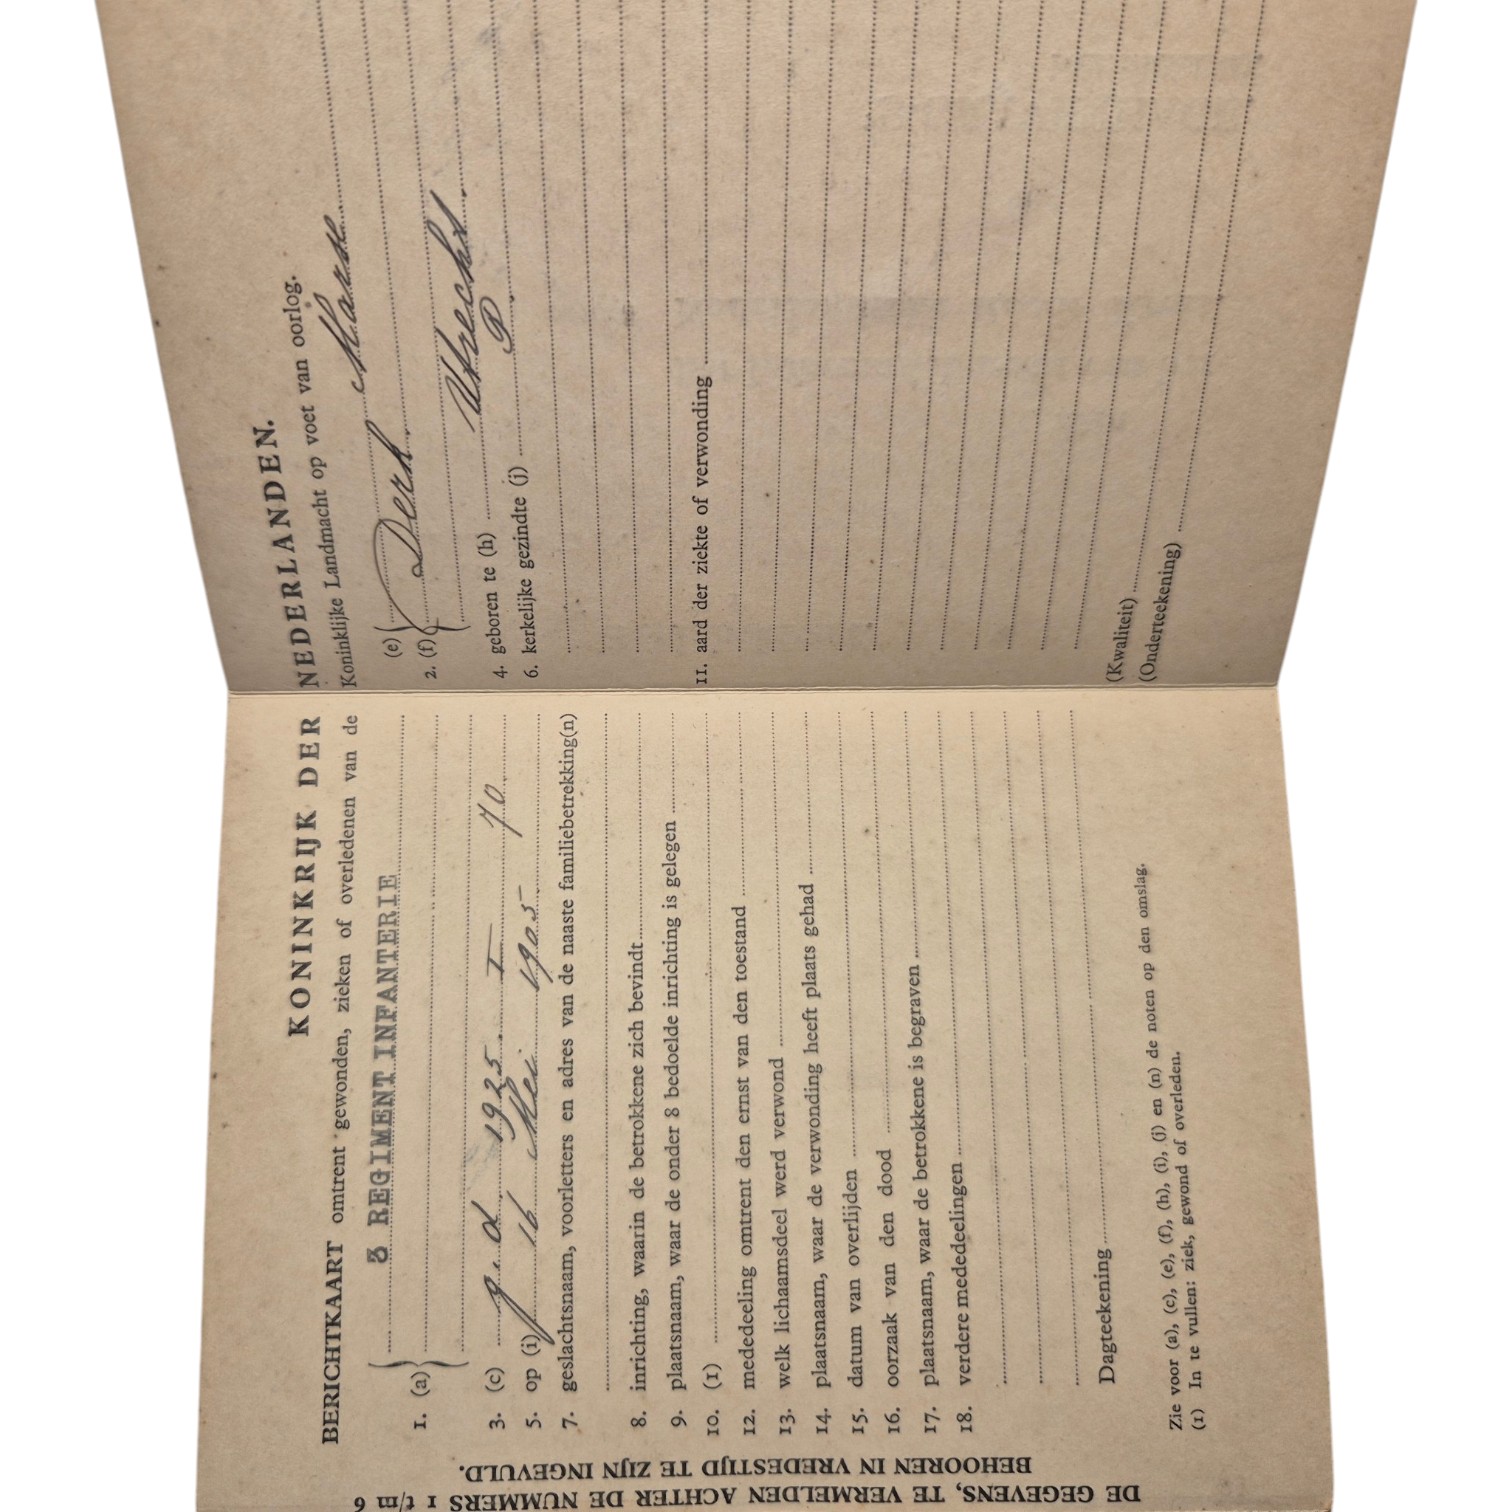 KONINKRIJK DER NEDERLANDEN.
BERICHTKAART omtrent gewonden, zieken of overledenen van de Koninklijke Landmacht op voet van oorlog.
3 REGIMENT INFANTERIE
1. (a)
(e)
2. (f) Derk
3. (c) 1925 I 70
4. geboren te (h) Utrecht
5. op (i) 16 Mei 1905
6. kerkelijke gezindte (j) P
7. geslachtsnaam, voorletters en adres van de naaste familiebetrekking(n)
8. inrichting, waarin de betrokkene zich bevindt
9. plaatsnaam, waar de onder 8 bedoelde inrichting is gelegen
10. (1)
11. aard der ziekte of verwonding
12. mededeeling omtrent den ernst van den toestand
13. welk lichaamsdeel werd verwond
14. plaatsnaam, waar de verwonding heeft plaats gehad
15. datum van overlijden
16. oorzaak van den dood
17. plaatsnaam, waar de betrokkene is begraven
18. verdere mededeelingen
Dagteekening
(Kwaliteit)
(Onderteekening)
Zie voor (a), (c), (e), (f), (h), (i), (j) en (n) de noten op den omslag.
(1) In te vullen: ziek, gewond of overleden.
DE GEGEVENS, TE VERMELDEN ACHTER DE NUMMERS 1 t/m 6
BEHOOREN IN VREDESTIJD TE ZIJN INGEVULD.